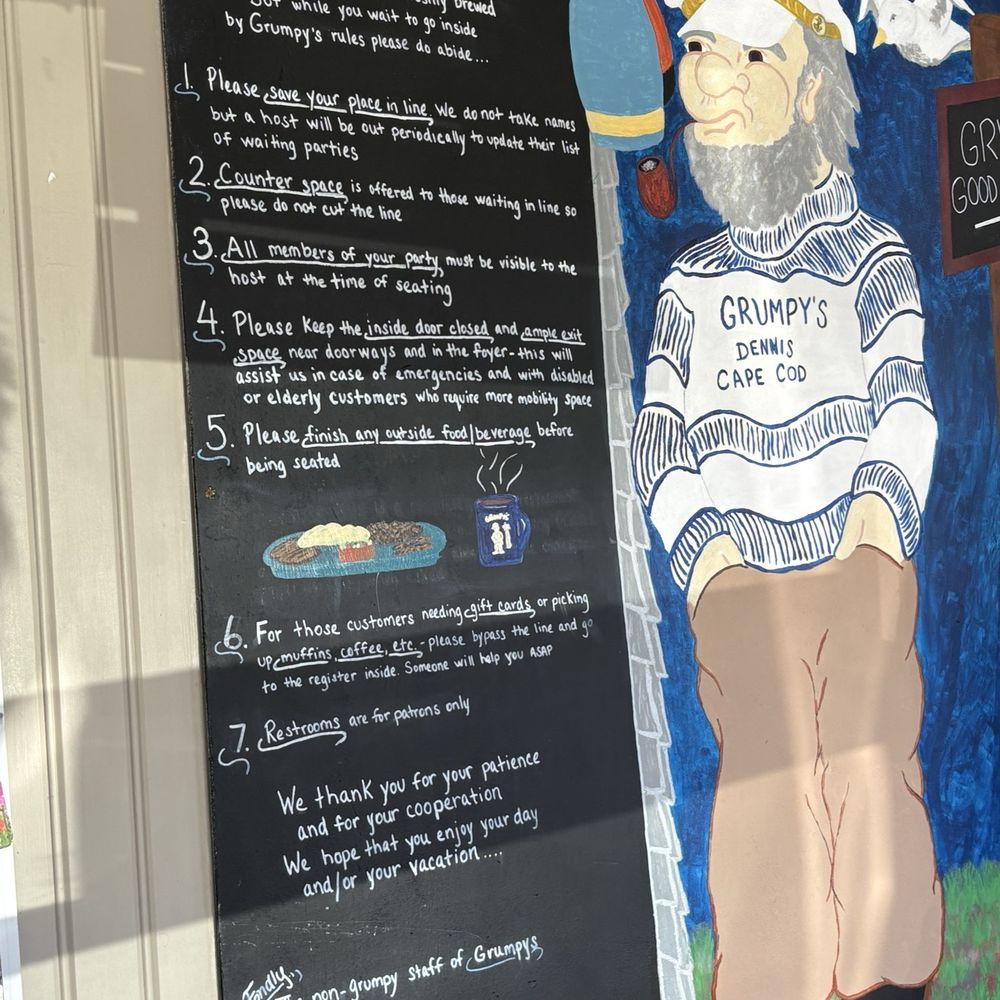 brewed
while you wait to go inside
by Grumpy's rules please do abide...
1. Please save your place in line, we do not take names
but a host will be out periodically to update their list
of waiting parties
2. Counter space, is offered to those waiting in line so
please do not cut the line
3. All members of your party, must be visible to the
host at the time of seating
4. Please keep the inside door closed and ample exit
space, near doorways and in the foyer - this will
assist us in case of emergencies and with disabled
or elderly customers who require more mobility space
5. Please finish any outside food/beverage, before
being seated
GRUMPY'S
6. For those customers needing gift cards, or picking
up muffins, coffee, etc. - please bypass the line and go
to the register inside. Someone will help you ASAP
7. Restrooms are for patrons only
We thank you for your patience
and for your cooperation
We hope that you enjoy your day
and/or your vacation....
Fondly,
non-grumpy staff of Grumpys
GRUMPY'S
DENNIS
CAPE COD
GR
GOOD